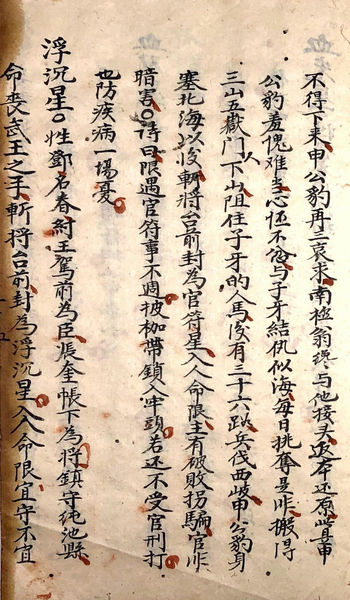 不得下来申公豹再三哀求南極翁纔与他接头返本还原此是申
公豹羞愧难当心怀不忿与子牙結仇似海每日挑奪是非搬得
三山五嶽門人下山阻住子牙的人馬後有三十六路兵伐西岐申公豹身
塞北海以後斬將台前封為官符星入人命限主有破敗拐騙官非
暗害○詩曰限遇官符事不週披枷帶鎖入牢頭若还不受官刑打
也防疾病一場憂
浮沉星○性鄧名春紂王駕前為臣張奎帳下為將鎮守绳池縣
命喪武王之手斬將台前封為浮沉星入人命限宜守不宜